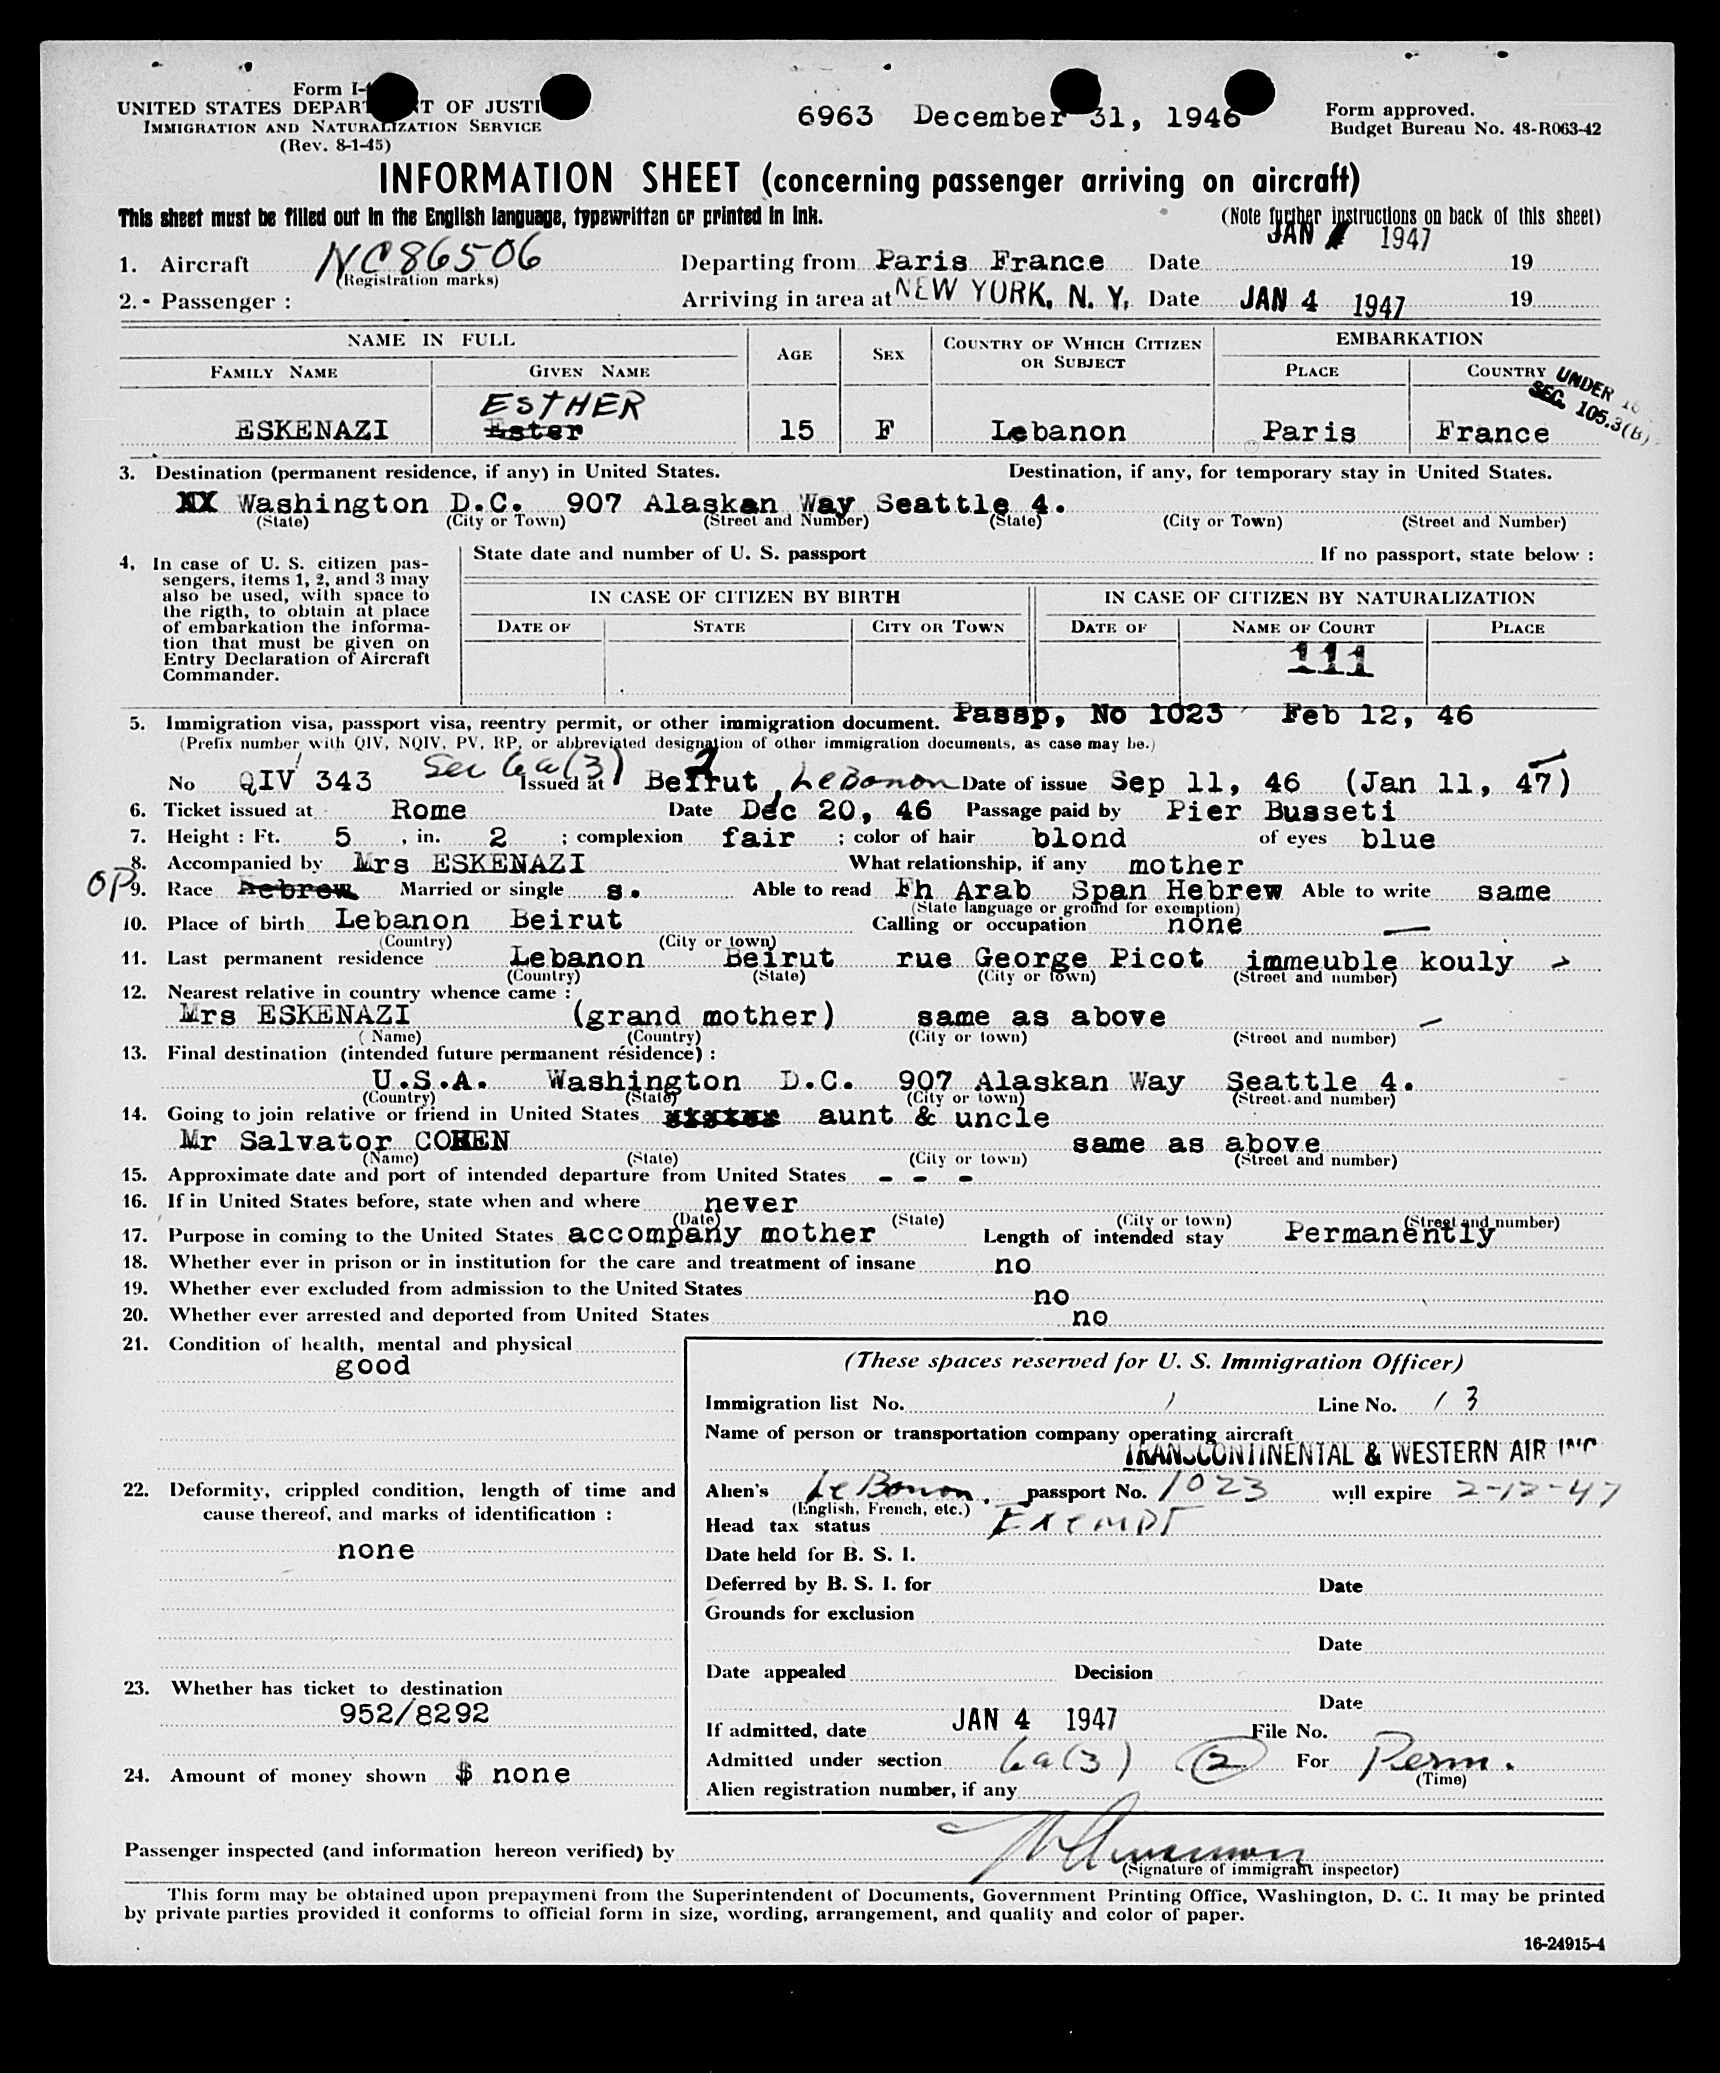 Form I-
UNITED STATES DEPART T OF JUSTI
IMMIGRATION AND NATURALIZATION SERVICE
(Rev. 8-1-45)
6963 December 31, 1946
Form approved.
Budget Bureau No. 48-R063-42
INFORMATION SHEET (concerning passenger arriving on aircraft)
This sheet must be filled out in the English language, typewritten or printed in ink.
(Note further instructions on back of this sheet)
1. Aircraft NC86506 Departing from Paris France Date JAN 1947 19
(Registration marks)
2. - Passenger : Arriving in area at NEW YORK, N. Y. Date JAN 4 1947 19
NAME IN FULL AGE SEX COUNTRY OF WHICH CITIZEN OR SUBJECT EMBARKATION
FAMILY NAME GIVEN NAME PLACE COUNTRY
UNDER 16
SEC. 105.3(B)
ESTHER
ESKENAZI Ester 15 F Lebanon Paris France
3. Destination (permanent residence, if any) in United States. Destination, if any, for temporary stay in United States.
XX Washington D.C. 907 Alaskan Way Seattle 4.
(State) (City or Town) (Street and Number) (State) (City or Town) (Street and Number)
4, In case of U. S. citizen pas-
sengers, items 1, 2, and 3 may
also be used, with space to
the rigth, to obtain at place
of embarkation the informa-
tion that must be given on
Entry Declaration of Aircraft
Commander.
State date and number of U. S. passport If no passport, state below :
IN CASE OF CITIZEN BY BIRTH IN CASE OF CITIZEN BY NATURALIZATION
DATE OF STATE CITY OR TOWN DATE OF NAME OF COURT PLACE
111
5. Immigration visa, passport visa, reentry permit, or other immigration document. Passp, No 1023 Feb 12, 46
(Prefix number with QIV, NQIV, PV, RP, or abbreviated designation of other immigration documents, as case may be.)
No QIV 343 Sec 6a(3) Issued at Beirut, LeBanon Date of issue Sep 11, 46 (Jan 11, 47)
2
6. Ticket issued at Rome Date Dec 20, 46 Passage paid by Pier Busseti
7. Height : Ft. 5 , in. 2 ; complexion fair ; color of hair blond of eyes blue
8. Accompanied by Mrs ESKENAZI What relationship, if any mother
OP
9. Race hebrew Married or single s. Able to read Fh Arab Span Hebrew Able to write same
(State language or ground for exemption)
10. Place of birth Lebanon Beirut Calling or occupation none
(Country) (City or town)
11. Last permanent residence Lebanon Beirut rue George Picot immeuble kouly
(Country) (State) (City or town) (Street and number)
12. Nearest relative in country whence came :
Mrs ESKENAZI (grand mother) same as above
(Name) (Country) (City or town) (Street and number)
13. Final destination (intended future permanent résidence) :
U.S.A. Washington D.C. 907 Alaskan Way Seattle 4.
(Country) (State) (City or town) (Street and number)
14. Going to join relative or friend in United States sister aunt & uncle
Mr Salvator COHEN same as above
(Name) (State) (City or town) (Street and number)
15. Approximate date and port of intended departure from United States - - -
16. If in United States before, state when and where never
(Date) (State) (City or town) (Street and number)
17. Purpose in coming to the United States accompany mother Length of intended stay Permanently
18. Whether ever in prison or in institution for the care and treatment of insane no
19. Whether ever excluded from admission to the United States no
20. Whether ever arrested and deported from United States no
21. Condition of health, mental and physical
good
22. Deformity, crippled condition, length of time and
cause thereof, and marks of identification :
none
23. Whether has ticket to destination
952/8292
24. Amount of money shown $ none
(These spaces reserved for U. S. Immigration Officer)
Immigration list No. 1 Line No. 13
Name of person or transportation company operating aircraft
TRANSCONTINENTAL & WESTERN AIR INC
Alien's LeBanon, passport No. 1023 will expire 2-12-47
(English, French, etc.)
Head tax status EXEMPT
Date held for B. S. I.
Deferred by B. S. I. for Date
Grounds for exclusion
Date
Date appealed Decision
Date
If admitted, date JAN 4 1947 File No.
Admitted under section 6a(3) (2) For Perm.
(Time)
Alien registration number, if any
Passenger inspected (and information hereon verified) by
(Signature of immigrant inspector)
This form may be obtained upon prepayment from the Superintendent of Documents, Government Printing Office, Washington, D. C. It may be printed
by private parties provided it conforms to official form in size, wording, arrangement, and quality and color of paper.
16-24915-4